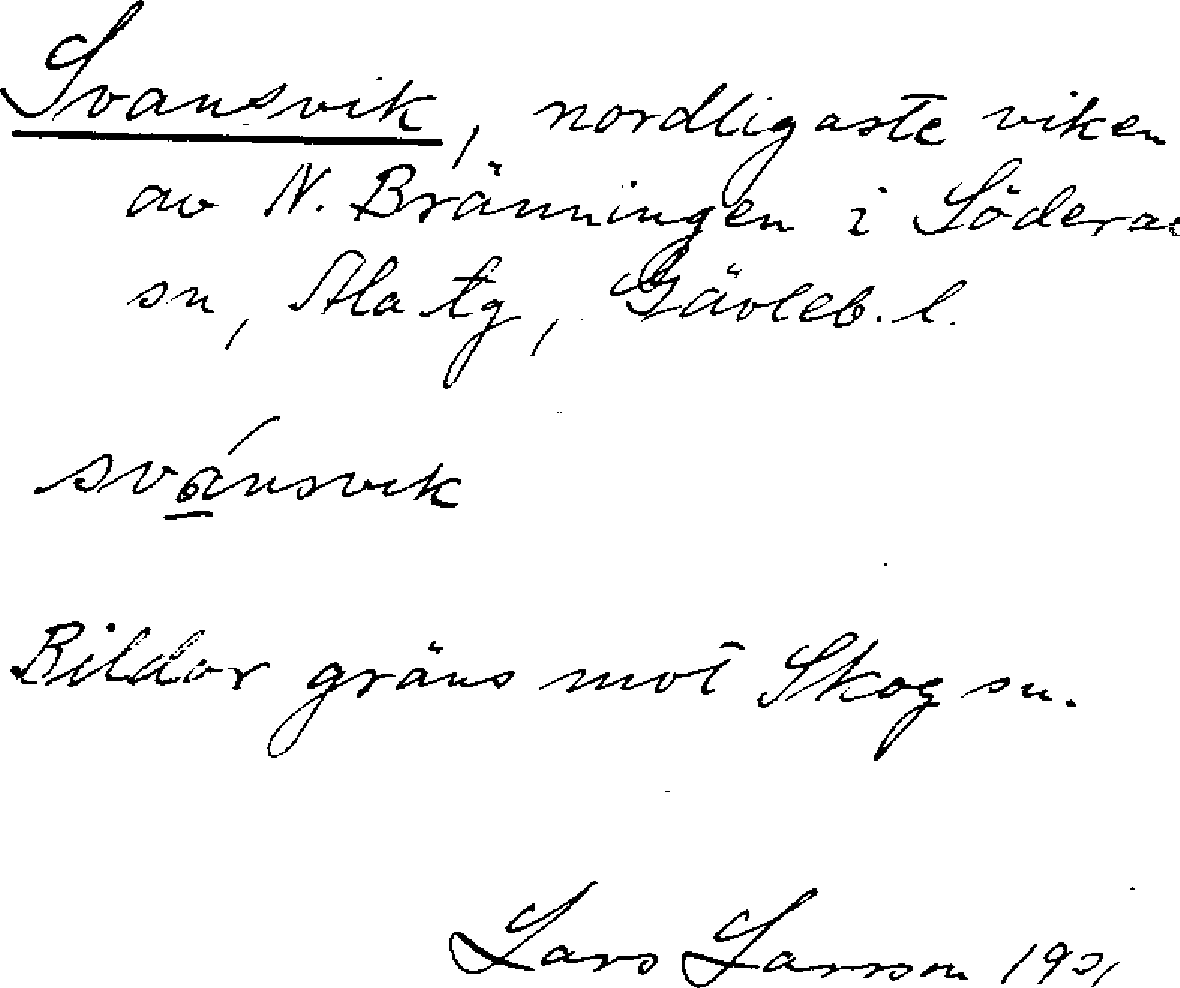 Svansvik, nordligaste viken
av N. Bränningen i Södera
sn, Ala tg, Gävleb. l.
svánsvik
Bildar gräns mot Skog sn.
Lars Larsson